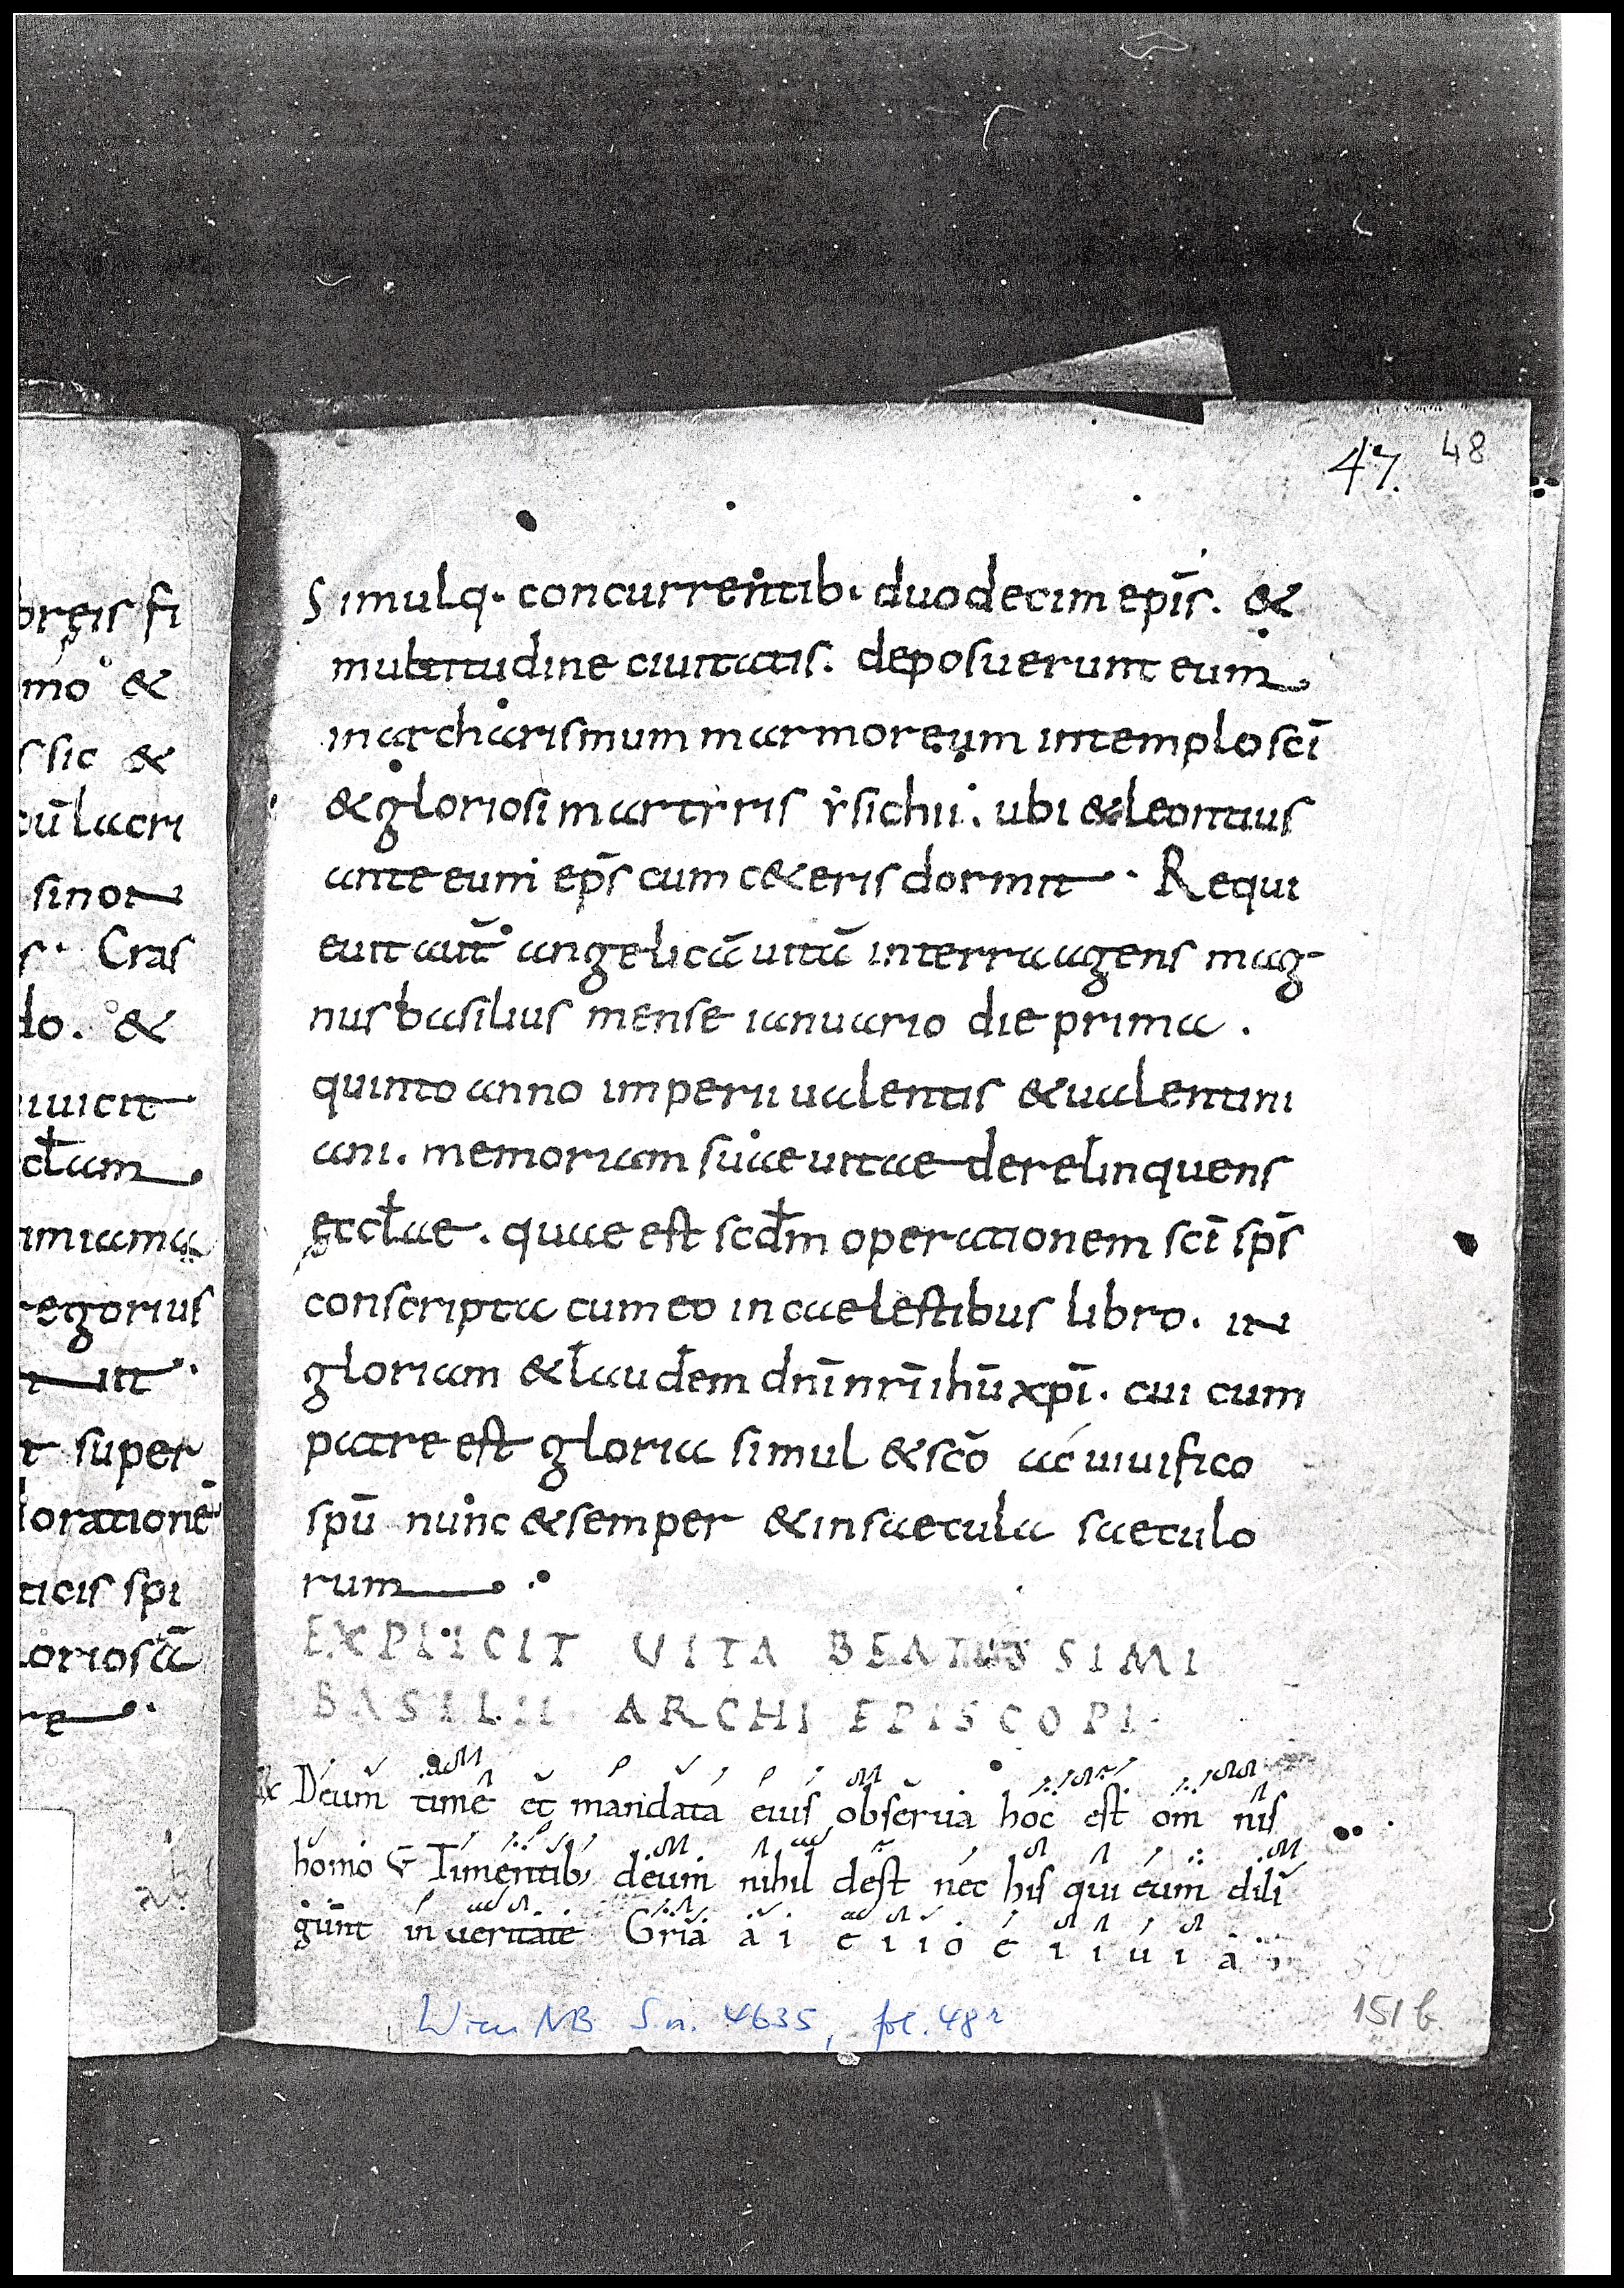 47. 48
breis fi
mo &
s sic &
cū lacri
sinon
s· Cras
do. &
uiuicit
cłam
imiama
regorius
n it
t super
lorationē
ticis spi
loriosā
re
Simulq· concurrentib· duodecim epīs. &
multitudine ciuitatis. deposuerunt eum
inarcharismum marmoreum intemplo scī
& gloriosi martyris ysichii. ubi & leontius
ante eum ep̄s cum c&eris dormit· Requi
euit aut̄ angelicā uitā interra agens mag-
nus basilius mense ianuario die prima.
quinto anno imperii ualentis & ualentini
ani. memoriam suae uitae derelinquens
eccłae. quae est scđm operationem scī sp̄s
conscripta cum eo in caelestibus libro. in
gloriam & laudem dn̄i nr̄i ihū xpī. cui cum
patre est gloria simul & scō ac uiuifico
spū nunc & semper & insaecula saeculo
rum
EXPLICIT UITA BEATISSIMI
BASILII ARCHI EPISCOPI
R Deum time et mandata eius obserua hoc est om nis
homo V Timentib; deum nihil dest nec his qui eum dili
gunt in ueritate Gria a i e i i o e i i u i a
Wien NB S.n. 4635, fol. 48r
151b.